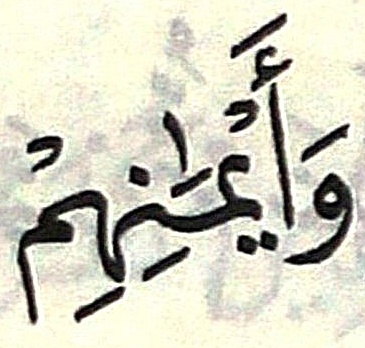 وَأَيْمَـٰنِهِمْ